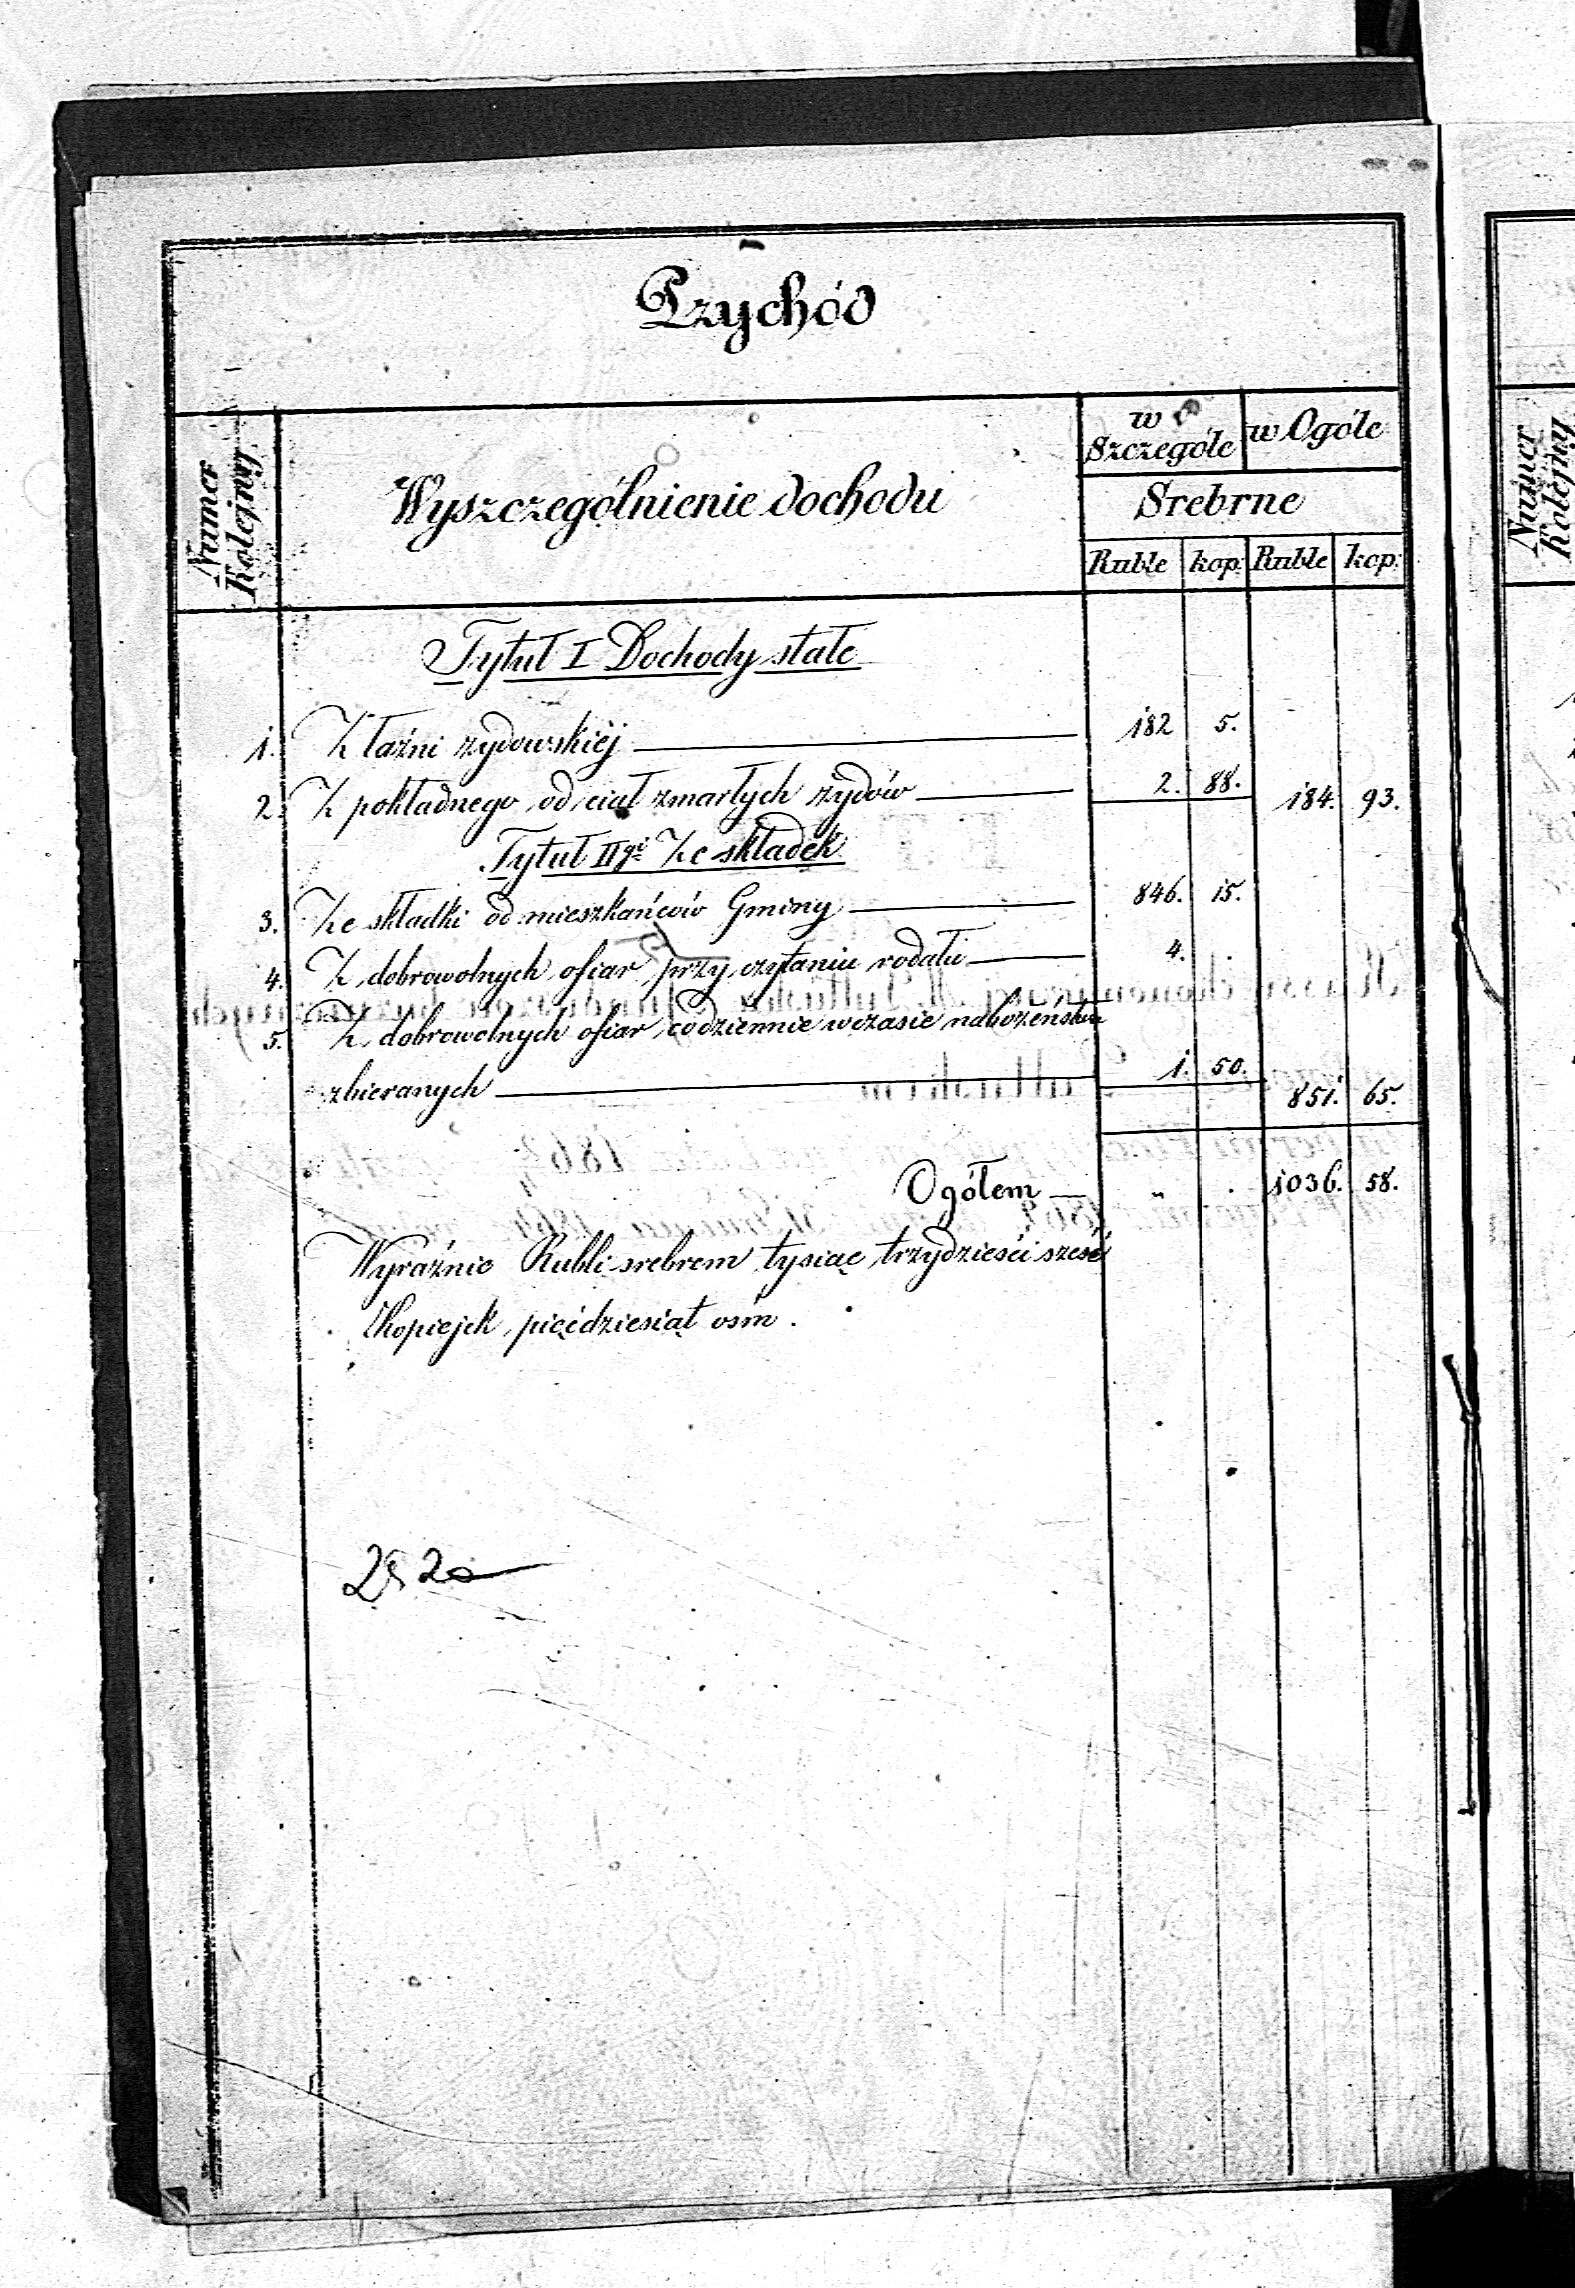 Przychód
Numer Kolejny
Wyszczególnienie dochodu
w Szczególe
w Ogóle
Srebrne
Ruble kop: Ruble kop:
Tytuł I Dochody stałe
1. Z łaźni żydowskiéj 182 5.
2. Z pokładnego od ciał zmarłych żydów 2. 88. 184. 93.
Tytuł II gi Ze składek
3. Ze składki od mieszkańców Gminy 846. 15.
4. Z dobrowolnych ofiar przy czytaniu rodału 4. .
5. Z dobrowolnych ofiar codziennie w czasie nabożeństwa
zbieranych 1. 50. 851. 65.
Ogółem " . 1036. 58.
Wyraźnie Rubli srebrem tysiąc trzydzieści sześć
Kopiejek pięćdziesiąt ośm.
Numer Kolejny